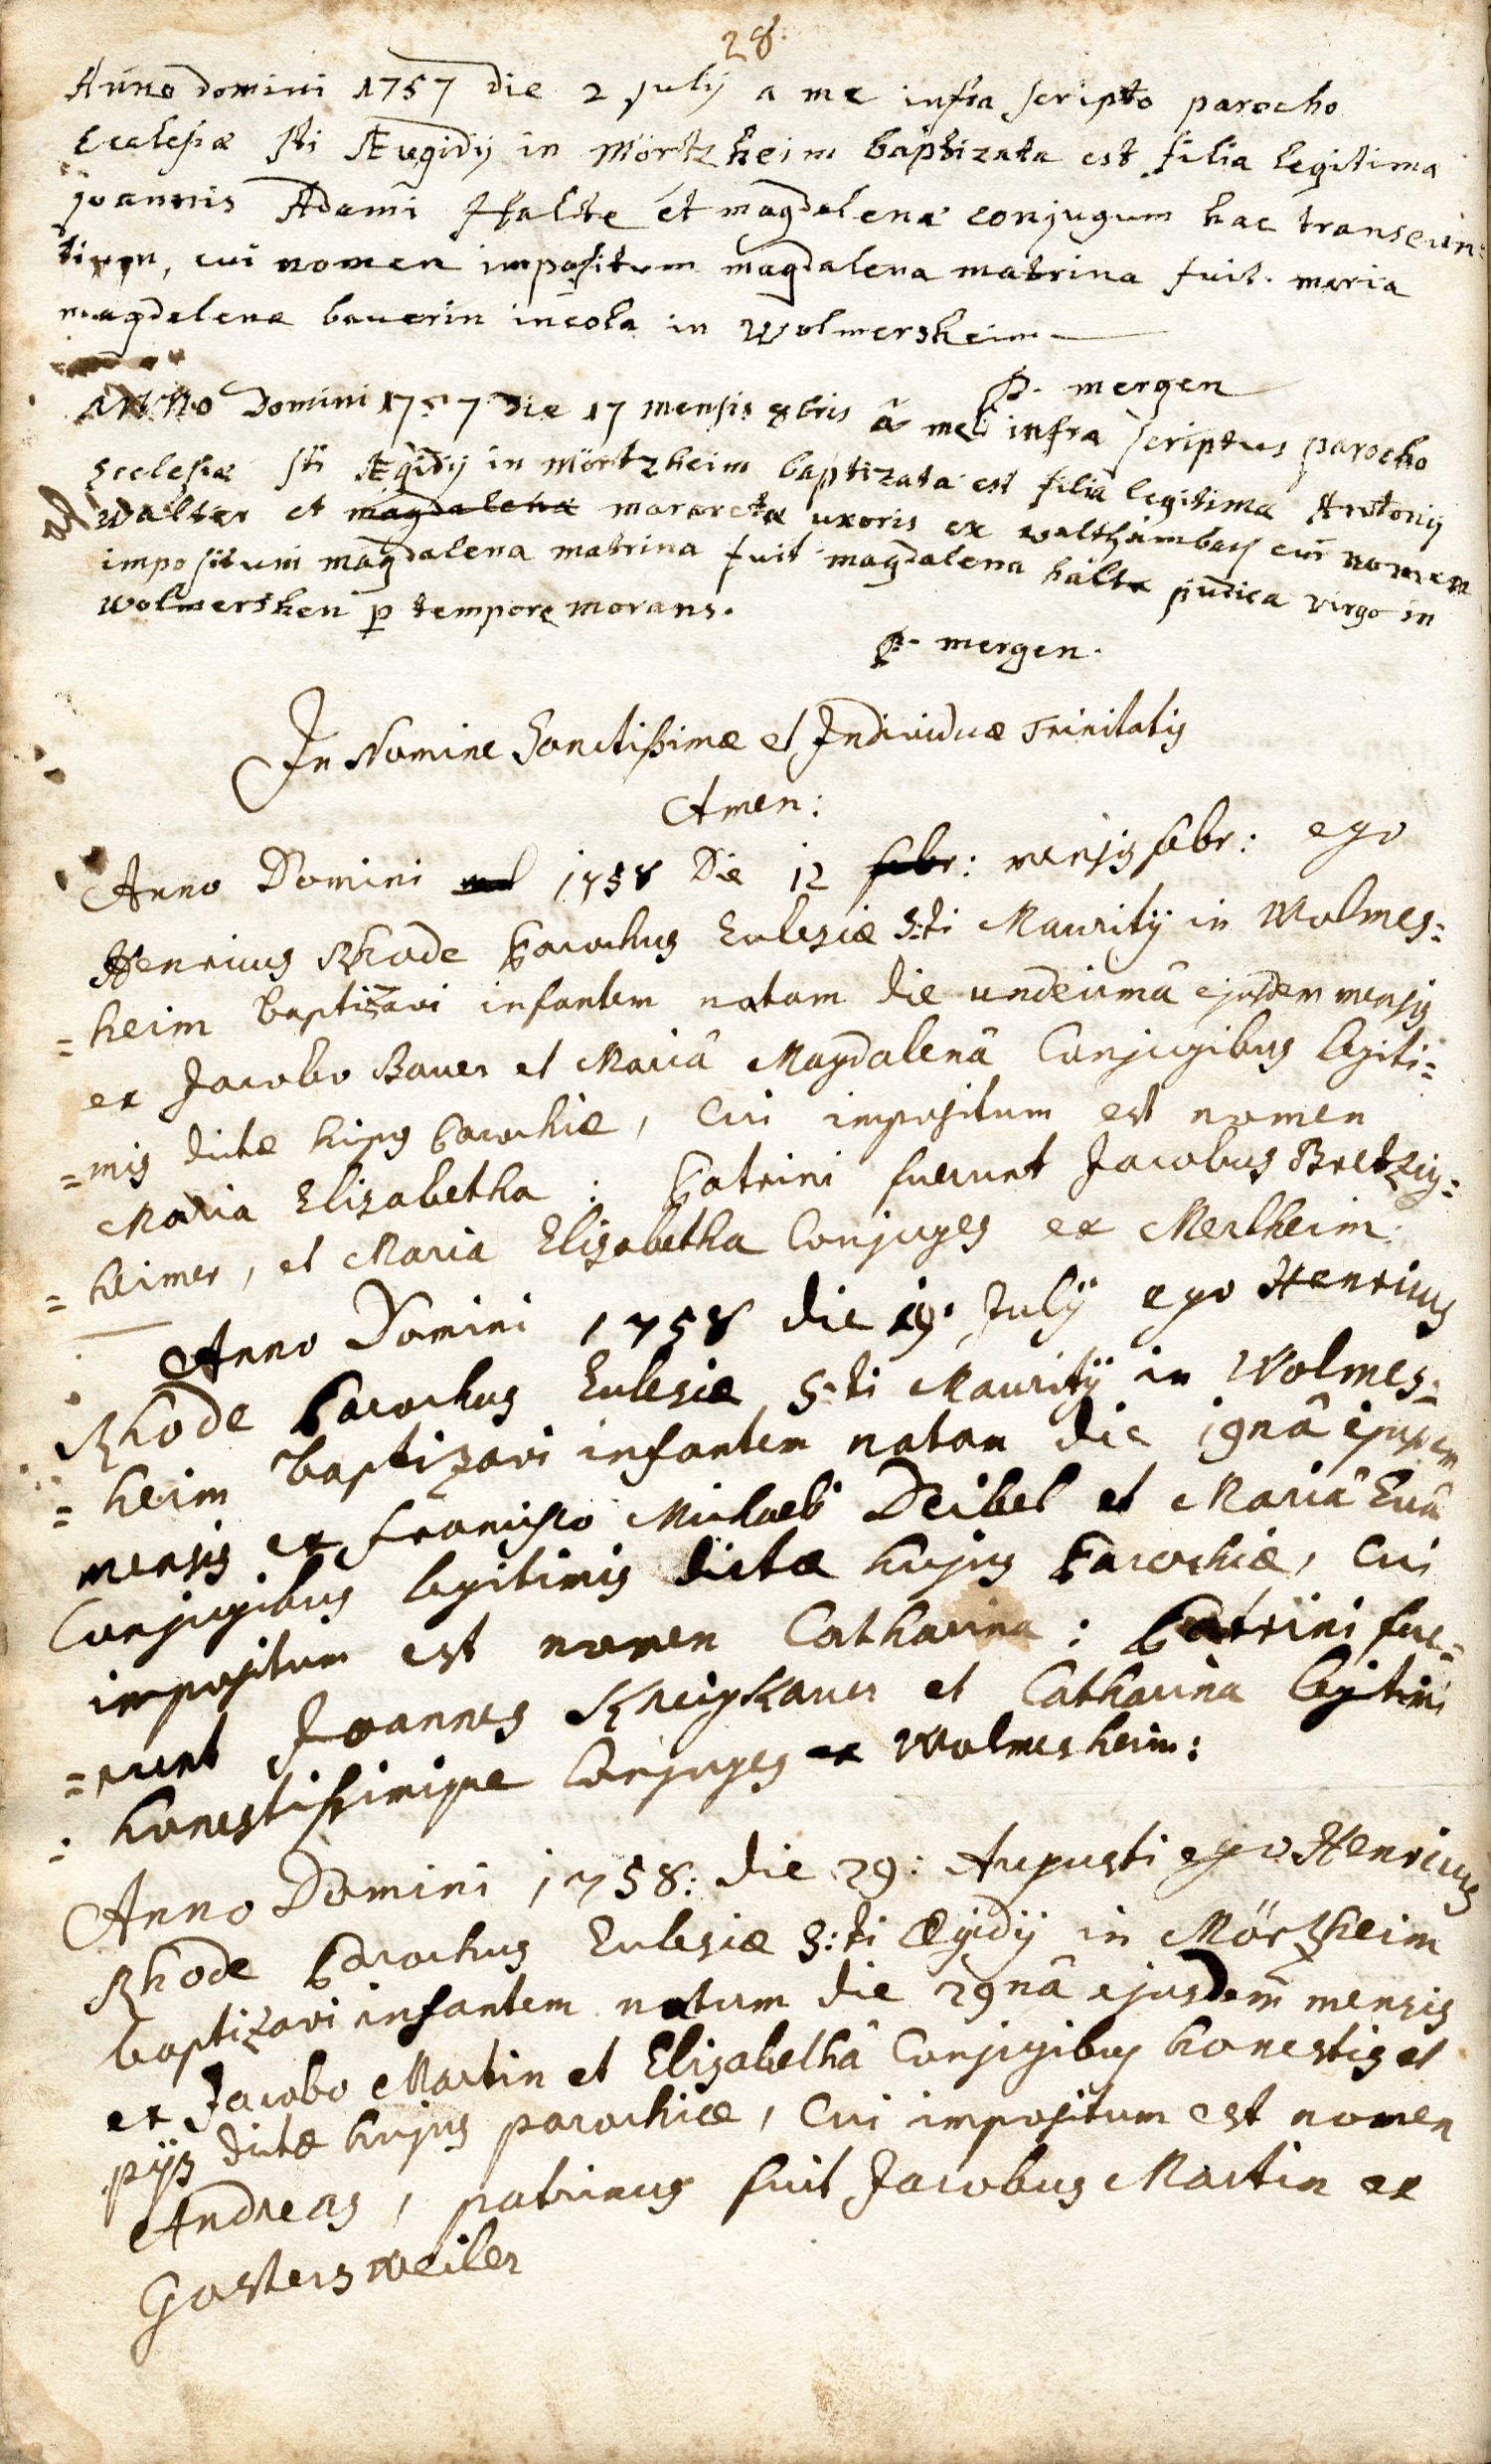 28.
Anno domini 1757 die 2 julij a me infra scripto parocho
Ecclesiæ sti Æugidij in Mörtzheim baptizata est filia legitima
joannis Adami Halte et magdalena conjugum hac transeun:
tium, cui nomen impositum magdalena matrina fuit. maria
magdalena bauerin incola in Wolmersheim
P. mergen
Anno Domini 1757 die 17 mensis 8bris â me infra scriptus parocho
Ecclesiæ sti Ægidij in Mörtzheim baptizata est filia legitima Antonij
Walter et magdalena marareta uxoris ex walthambach cui nomen
impositum magdalena matrina fuit magdalena halte pudica virgo in
Wolmershen p tempore morans.
P. mergen.
In Nomine Sanctißimæ et Individuæ Trinitatis
Amen:
Anno Domini 1758 Die 12 febr: mensis febr: ego
Henricus Rhode Parochus Eclesiæ S:ti Mauritij in Wolmes=
=heim baptizavi infantem natam die undecimâ ejusdem mensis
ex Jacobo Bauer et Mariâ Magdalenâ Conjugibus legiti=
=mis dictæ hujus Parochiæ, Cui impositum est nomen
Maria Elisabetha : Patrini fuerunt Jacobus Bretzig=
=heimer, et Maria Elisabetha Conjuges ex Merlheim.
Anno Domini 1758 die 19. July ego Henricus
Rhode Parochus Eclesiæ S:ti Mauritij in Wolmes=
=heim baptizavi infantem natam die 19nâ ejusdem
mensis ex francisco Michaeli Deibel et Mariâ Evâ
Conjugibus legitimis dictæ hujus Parochiæ, Cui
impositum est nomen Catharina : Patrini fue=
=runt Joannes Kneiskauer et Catharina legitimi
: honestißimique Conjuges ex Wolmesheim:
Anno Domini 1758: die 29: Augusti ego Henricus
Rhode Parochus Eclesiæ S:ti Ægidij in Mörtzheim
baptizavi infantem natum die 29nâ ejusdem mensis
ex Jacobo Martin et Elisabethâ Conjugibus honestis et
pijs dictæ hujus parochiæ, Cui impositum est nomen
Andreas, patrinus fuit Jacobus Martin ex
Gossersweiler